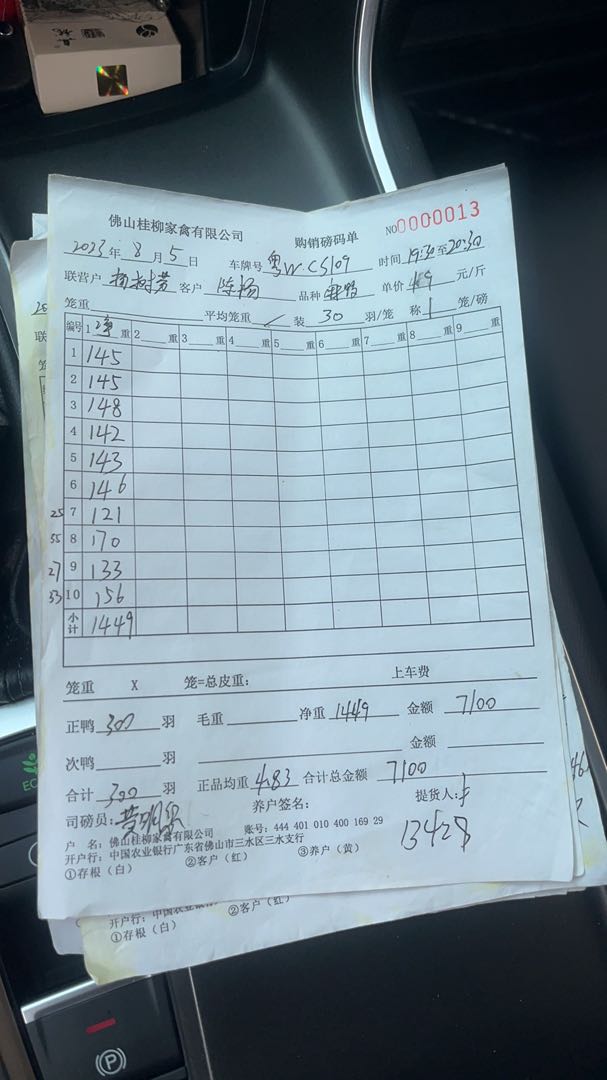 佛山桂柳家禽有限公司 购销磅码单 NO0000013
2023年8月5日 车牌号 粤W·CS109 时间 19:30至20:30
联营户 客户 陈扬 品种 单价 4.9 元/斤
笼重 平均笼重 / 装 30 羽/笼 称 1 笼/磅
编号 1 净 重 2 重 3 重 4 重 5 重 6 重 7 重 8 重 9 重
1 145
2 145
3 148
4 142
5 143
6 146
25 7 121
8 170
27 9 133
33 10 156
小计 1449
笼重 X 笼=总皮重: 上车费
正鸭 300 羽 毛重 净重 1449 金额 7100
次鸭 羽 金额
合计 300 羽 正品均重 4.83 合计总金额 7100
司磅员: 养户签名: 提货人:
户 名: 佛山桂柳家禽有限公司 账号: 444 401 010 400 169 29
13428
开户行: 中国农业银行广东省佛山市三水区三水支行
①存根(白) ②客户(红) ③养户(黄)
开户行: 中国农业银
①存根(白) ②客户(红)
P